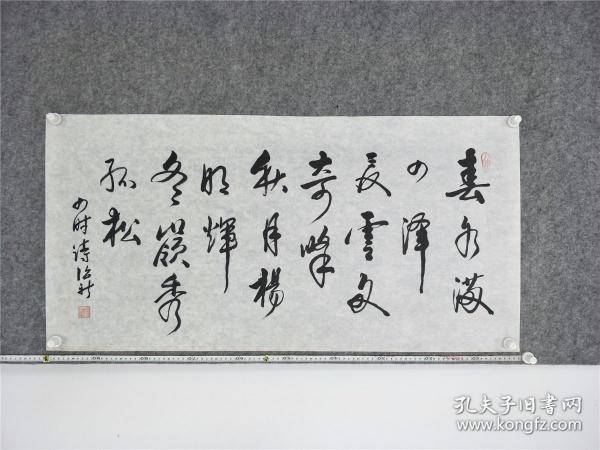 春水满
四泽
夏雲多
奇峰
秋月楊
明輝
冬嶺秀
孤松
四时诗
孔夫子旧书网
www.kongfz.com